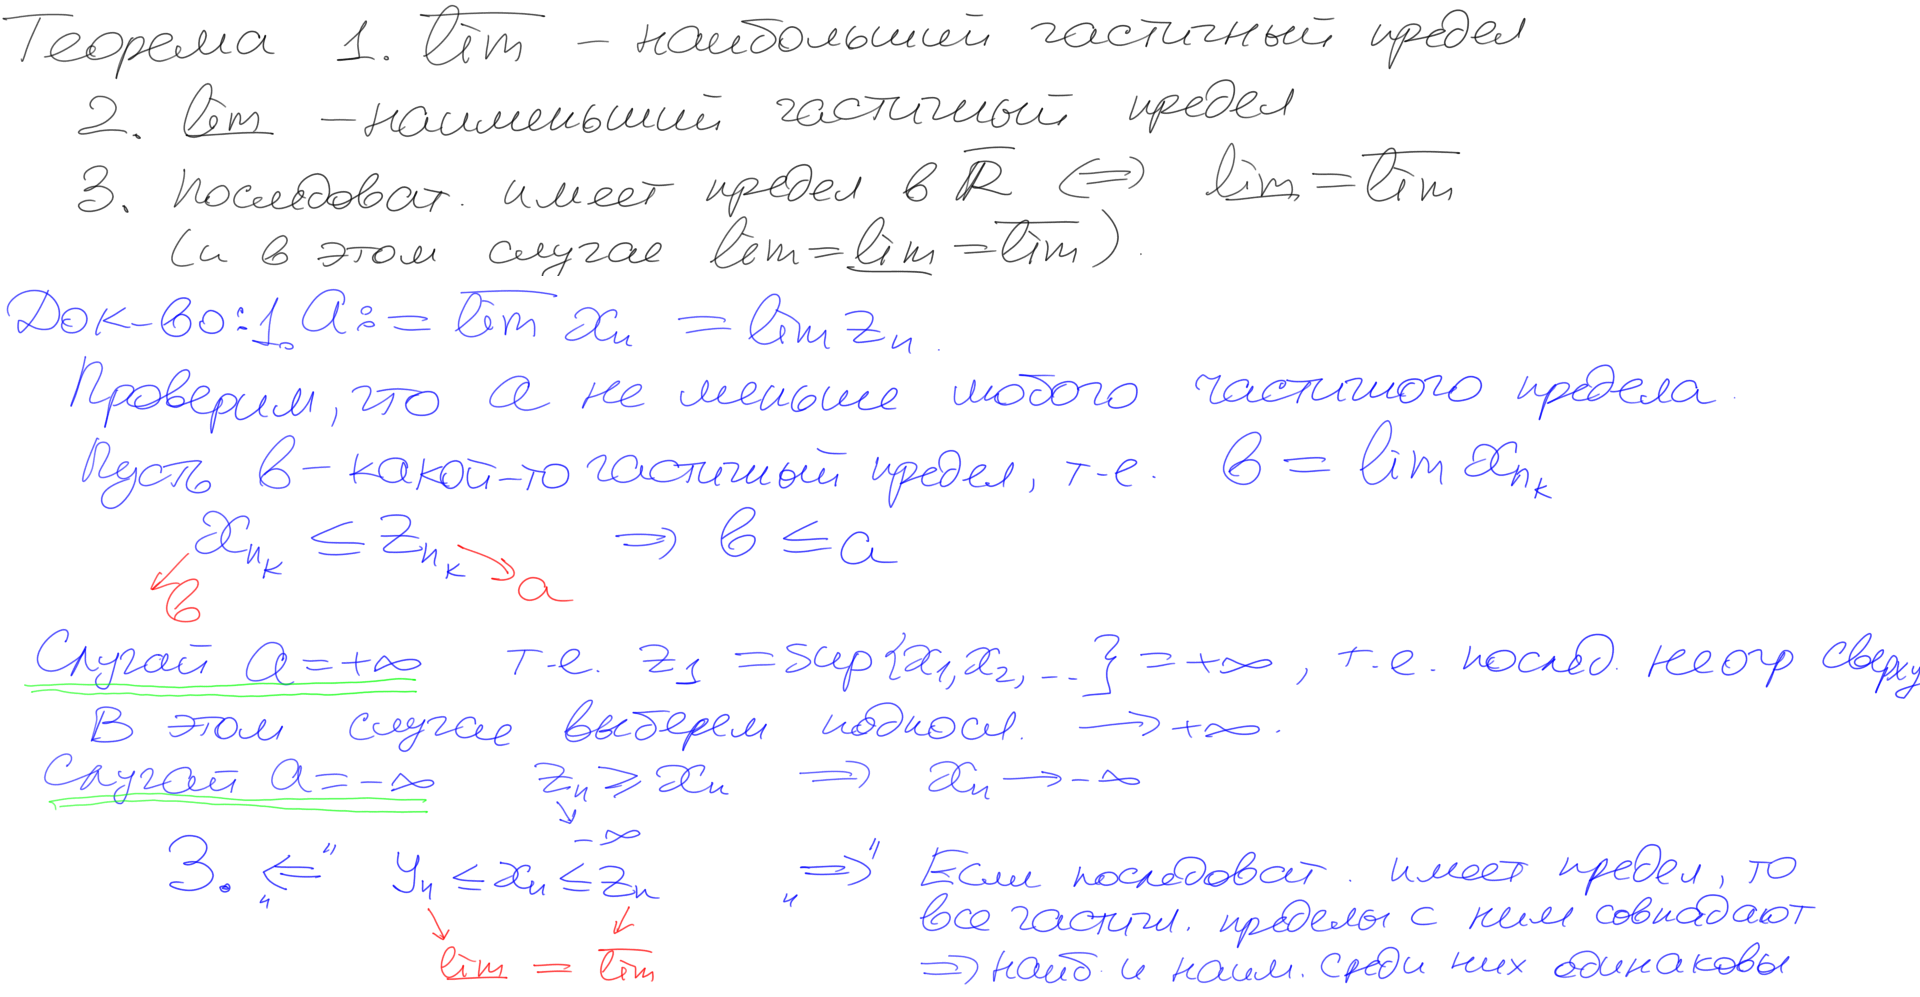 Теорема 1. l̅i̅m̅ – наибольший частичный предел
2. l̲i̲m̲ – наименьший частичный предел
3. Последоват. имеет предел в R̅ ⟺ l̲i̲m̲ = l̅i̅m̅
(и в этом случае lim = l̲i̲m̲ = l̅i̅m̅).
Док-во: 1. a := l̅i̅m̅ xₙ = lim zₙ.
Проверим, что a не меньше любого частичного предела.
Пусть b – какой-то частичный предел, т.е. b = lim x_{n_k}
x_{n_k} ≤ z_{n_k} ⇒ b ≤ a
b a
Случай a = +∞ т.е. z₁ = sup{x₁, x₂, ...} = +∞, т.е. послед. неогр сверху
В этом случае выберем подпосл. → +∞.
Случай a = -∞ zₙ ≥ xₙ ⇒ xₙ → -∞
↘ -∞
3. „⇐" yₙ ≤ xₙ ≤ zₙ „⇒" Если последоват. имеет предел, то
все частичн. пределы с ним совпадают
l̲i̲m̲ = l̅i̅m̅ ⇒ наиб. и наим. среди них одинаковы